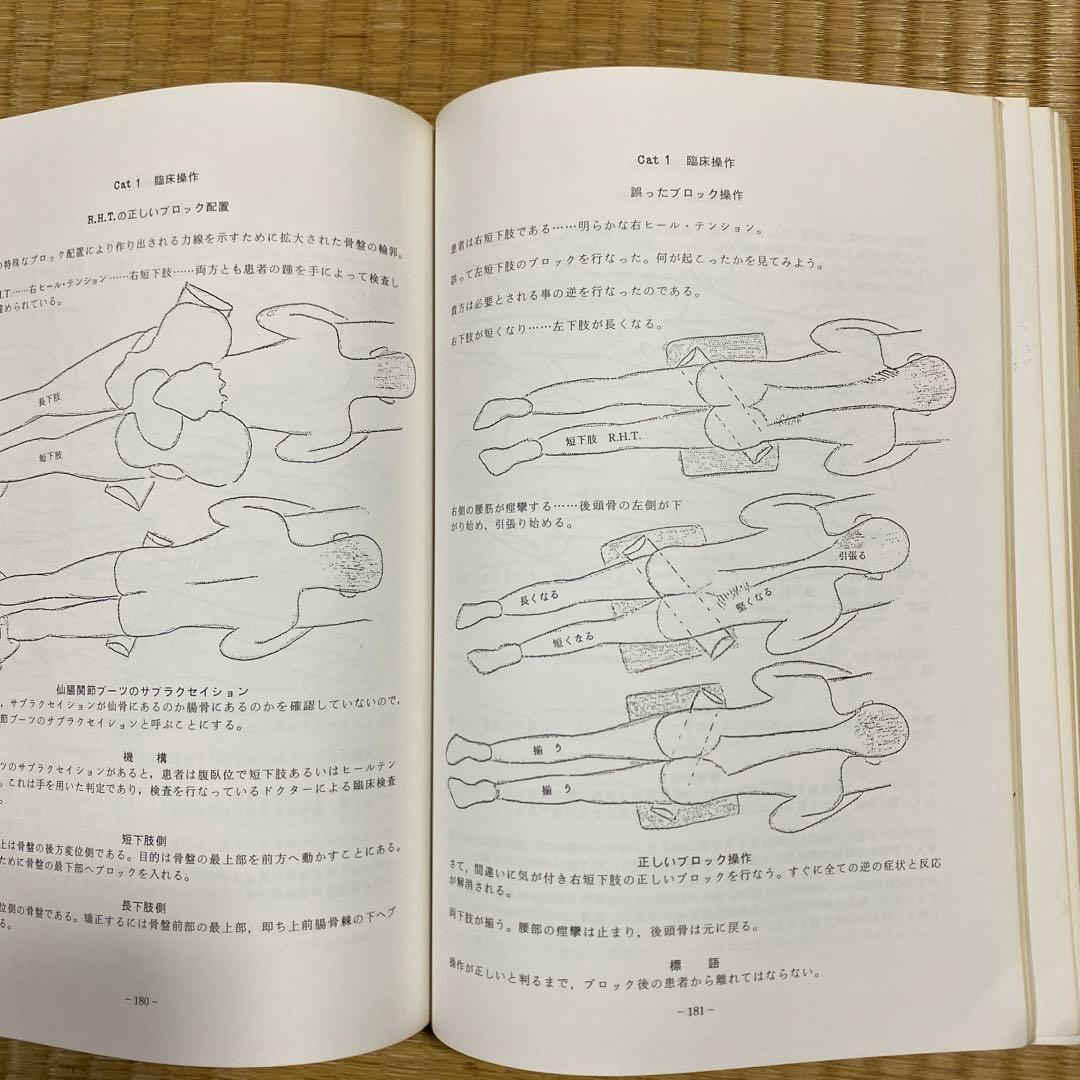 Cat 1 臨床操作
R.H.T.の正しいブロック配置
の特殊なブロック配置により作り出される力線を示すために拡大された骨盤の輪郭。
H.T.……右ヒール・テンション……右短下肢……両方とも患者の踵を手によって検査し
確められている。
長下肢
短下肢
仙腸関節ブーツのサブラクセイション
，サブラクセイションが仙骨にあるのか腸骨にあるのかを確認していないので，
節ブーツのサブラクセイションと呼ぶことにする。
機 構
ーツのサブラクセイションがあると，患者は腹臥位で短下肢あるいはヒールテン
。これは手を用いた判定であり，検査を行なっているドクターによる臨床検査
。
短下肢側
上は骨盤の後方変位側である。目的は骨盤の最上部を前方へ動かすことにある。
ために骨盤の最下部へブロックを入れる。
長下肢側
位側の骨盤である。矯正するには骨盤前部の最上部，即ち上前腸骨棘の下へブ
る。
－180－
Cat 1 臨床操作
誤ったブロック操作
患者は右短下肢である……明らかな右ヒール・テンション。
誤って左短下肢のブロックを行なった。何が起こったかを見てみよう。
貴方は必要とされる事の逆を行なったのである。
右下肢が短くなり……左下肢が長くなる。
短下肢 R.H.T.
右側の腰筋が痙攣する……後頭骨の左側が下
がり始め，引張り始める。
引張る
長くなる
堅くなる
短くなる
揃う
揃う
正しいブロック操作
さて，間違いに気が付き右短下肢の正しいブロックを行なう。すぐに全ての逆の症状と反応
が解消される。
両下肢が揃う。腰部の痙攣は止まり，後頭骨は元に戻る。
標 語
操作が正しいと判るまで，ブロック後の患者から離れてはならない。
－181－